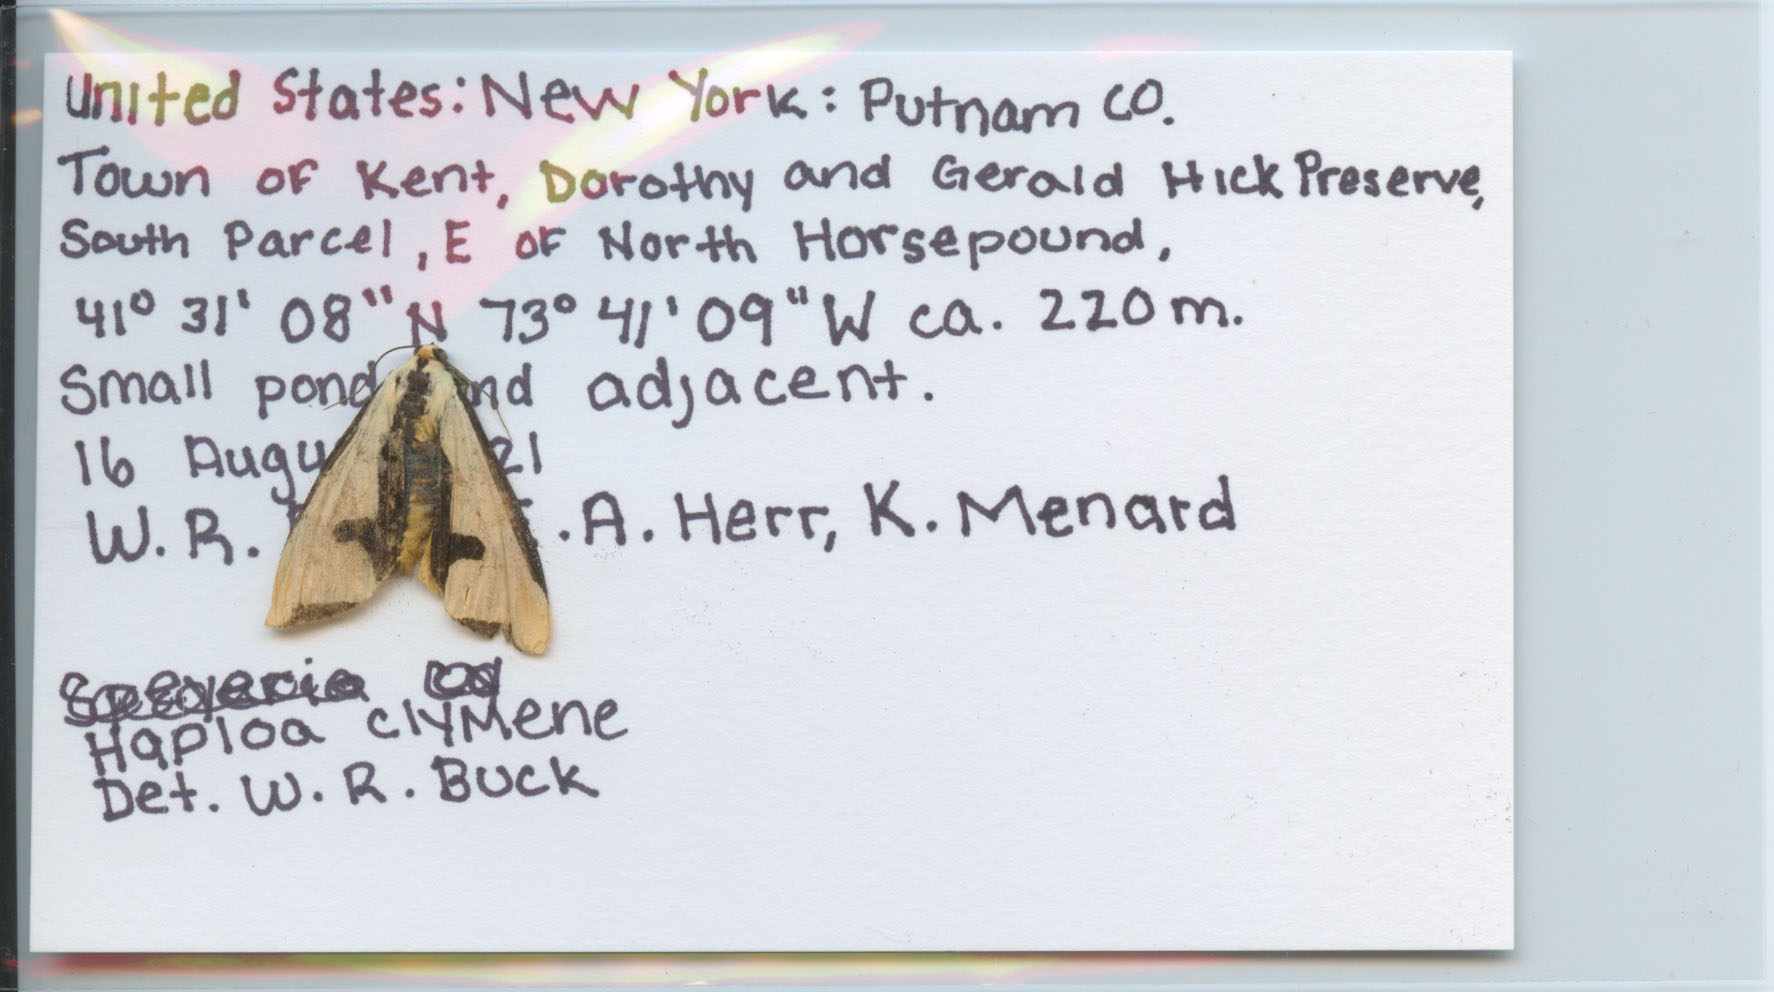 United States: New York: Putnam CO.
Town of Kent, Dorothy and Gerald Hick Preserve,
South Parcel, E of North Horsepound,
41° 31' 08" N 73° 41' 09" W ca. 220 m.
Small pond nd adjacent.
16 Augu 21
W. R. . A. Herr, K. Menard
Haploa clymene
Det. W. R. Buck